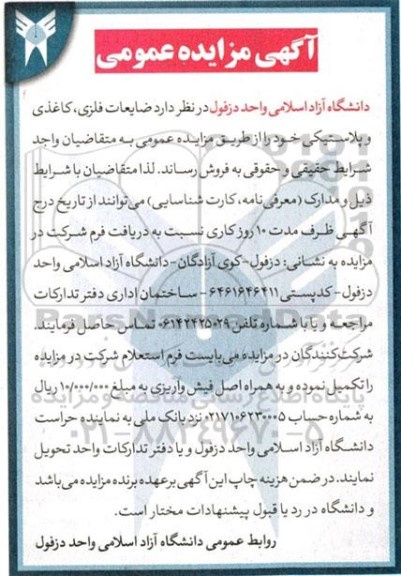 آگهی مزایده عمومی
دانشگاه آزاد اسلامی واحد دزفول در نظر دارد ضایعات فلزی، کاغذی
و پلاستیکی خود را از طریق مزایده عمومی به متقاضیان واجد
شرایط حقیقی و حقوقی به فروش رساند. لذا متقاضیان با شرایط
ذیل و مدارک (معرفی نامه، کارت شناسایی) می‌توانند از تاریخ درج
آگهی ظرف مدت ۱۰ روز کاری نسبت به دریافت فرم شرکت در
مزایده به نشانی: دزفول-کوی آزادگان-دانشگاه آزاد اسلامی واحد
دزفول-کدپستی ۶۴۶۱۶۴۶۴۱۱ - ساختمان اداری دفتر تدارکات
مراجعه و یا با شماره تلفن ۰۶۱۴۲۴۲۵۰۲۹ تماس حاصل فرمایند.
شرکت کنندگان در مزایده می‌بایست فرم استعلام شرکت در مزایده
را تکمیل نموده و به همراه اصل فیش واریزی به مبلغ ۱۰/۰۰۰/۰۰۰ ریال
به شماره حساب ۰۲۱۷۱۰۶۲۳۰۰۰۵ نزد بانک ملی به نماینده حراست
دانشگاه آزاد اسلامی واحد دزفول و یا دفتر تدارکات واحد تحویل
نمایند. در ضمن هزینه چاپ این آگهی بر عهده برنده مزایده می‌باشد
و دانشگاه در رد یا قبول پیشنهادات مختار است.
روابط عمومی دانشگاه آزاد اسلامی واحد دزفول
ParsNamadData
پایگاه اطلاع رسانی مناقصه و مزایده
۰۲۱-۸۸۳۴۹۶۷۰-۵